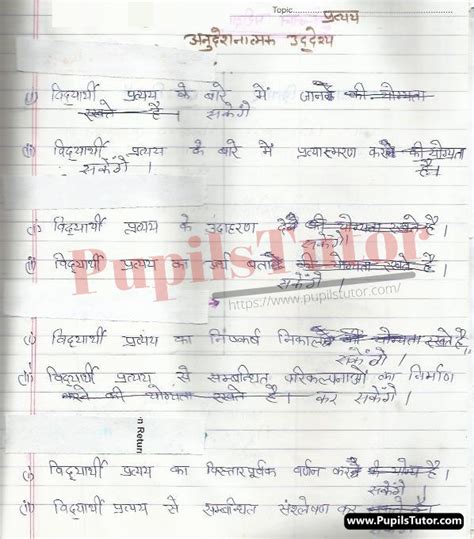 Topic.................... प्रत्यय
अनुदेशनात्मक उद्देश्य
(i) विद्यार्थी प्रत्यय के बारे में जानने की योग्यता
रखते है। सकेंगे
(ii) विद्यार्थी प्रत्यय के बारे में प्रत्यास्मरण करने की योग्यता है।
सकेंगे।
(i) विद्यार्थी प्रत्यय के उदाहरण देने की योग्यता रखते है।
सकेंगे।
(ii) विद्यार्थी प्रत्यय का बताने की योग्यता रखते है।
सकेंगे।
PupilsTutor
https://www.pupilstutor.com/
(i) विद्यार्थी प्रत्यय का निष्कर्ष निकालने की योग्यता रखते है।
सकेंगे।
(ii) विद्यार्थी प्रत्यय से सम्बन्धित परिकल्पनाओं का निर्माण
करने की योग्यता रखते है। कर सकेंगे।
n Retun
(i) विद्यार्थी प्रत्यय का विस्तारपूर्वक वर्णन करने की योग्य है।
सकेंगे।
(ii) विद्यार्थी प्रत्यय से सम्बन्धित संश्लेषण कर
सकेंगे
www.PupilsTutor.com